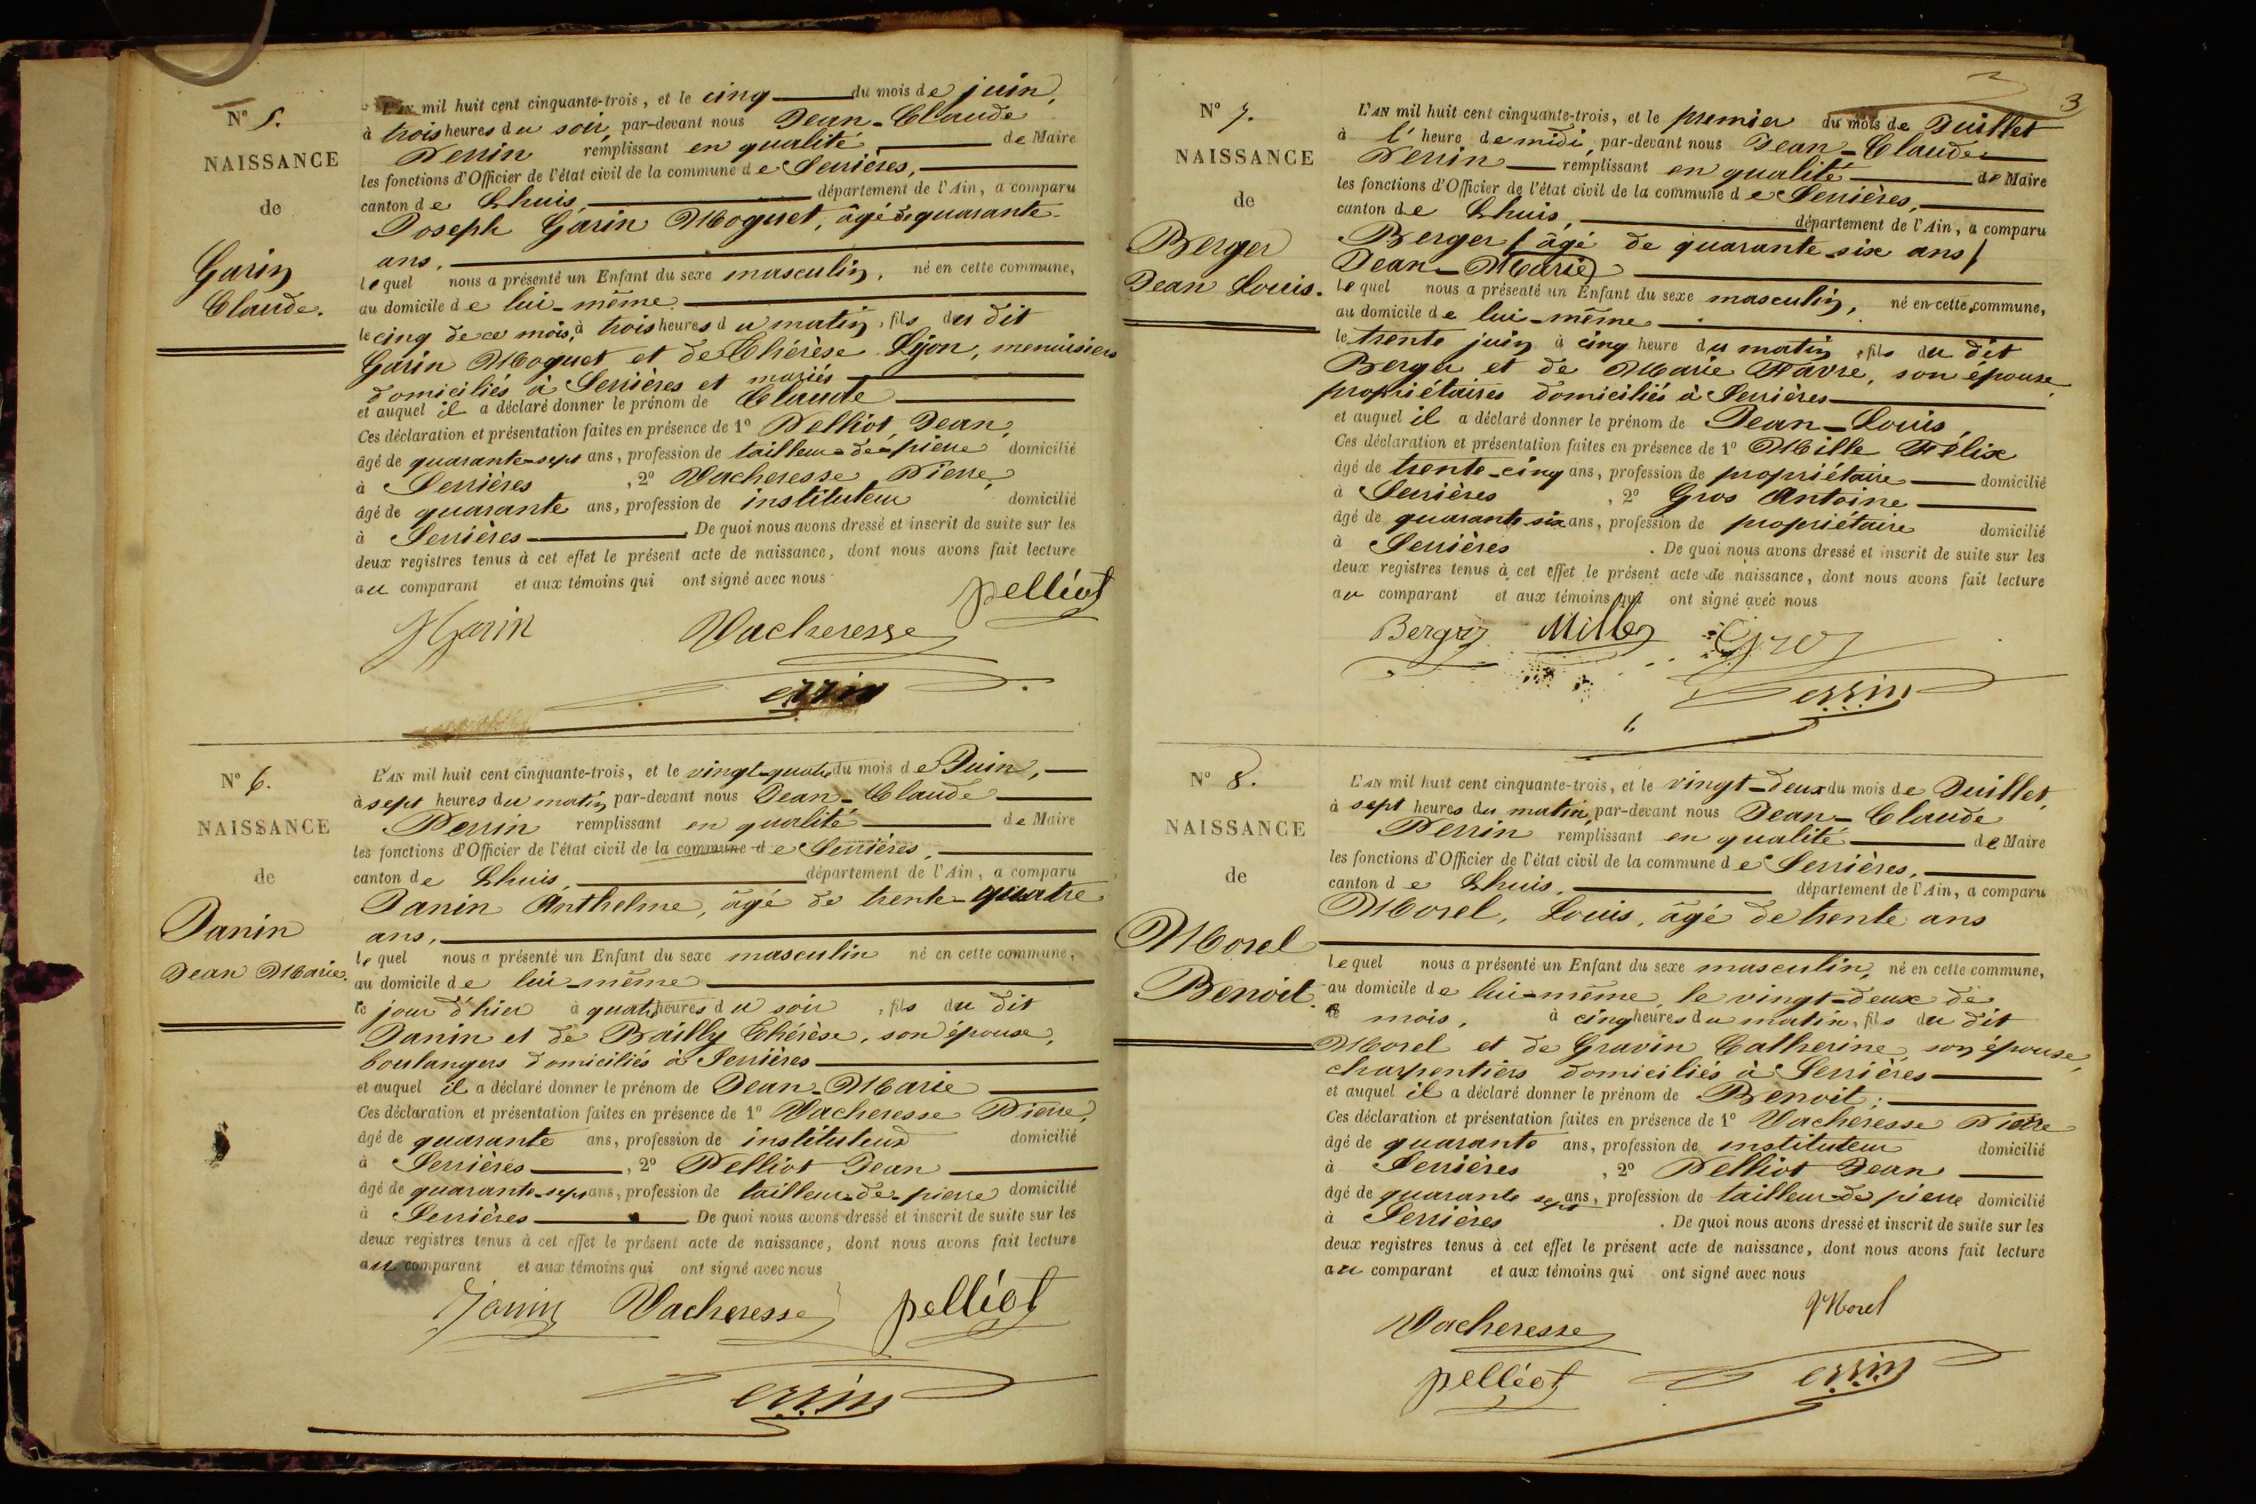 N° 5.
NAISSANCE
de
Garin
Claude.
L'AN mil huit cent cinquante-trois, et le cinq du mois de juin,
à trois heures du soir, par-devant nous Jean-Claude
Perrin remplissant en qualité de Maire
les fonctions d'Officier de l'état civil de la commune de Serrières,
canton de Lhuis, département de l'Ain, a comparu
Joseph Garin Moguet, âgé de quarante
ans,
lequel nous a présenté un Enfant du sexe masculin, né en cette commune,
au domicile de lui-même
le cinq de ce mois, à trois heures du matin, fils du dit
Garin Moguet et de Thérèse Lyon, menuisiers
domiciliés à Serrières et mariés
et auquel il a déclaré donner le prénom de Claude
Ces déclaration et présentation faites en présence de 1° Pelliot, Jean,
âgé de quarante-sept ans, profession de tailleur-de-pierre domicilié
à Serrières, 2° Vacheresse Pierre,
âgé de quarante ans, profession de instituteur domicilié
à Serrières. De quoi nous avons dressé et inscrit de suite sur les
deux registres tenus à cet effet le présent acte de naissance, dont nous avons fait lecture
au comparant et aux témoins qui ont signé avec nous
pelliot
Garin Vacheresse
Perrin
N° 6.
NAISSANCE
de
Janin
Jean Marie.
L'AN mil huit cent cinquante-trois, et le vingt-quatre du mois de Juin,
à sept heures du matin, par-devant nous Jean-Claude
Perrin remplissant en qualité de Maire
les fonctions d'Officier de l'état civil de la commune de Serrières,
canton de Lhuis, département de l'Ain, a comparu
Janin Anthelme, âgé de trente-quatre
ans,
lequel nous a présenté un Enfant du sexe masculin né en cette commune,
au domicile de lui-même
le jour d'hier à quatre heures du soir, fils du dit
Janin et de Bailly Thérèse, son épouse,
boulangers domiciliés à Serrières
et auquel il a déclaré donner le prénom de Jean-Marie
Ces déclaration et présentation faites en présence de 1° Vacheresse Pierre,
âgé de quarante ans, profession de instituteur domicilié
à Serrières, 2° Pelliot Jean
âgé de quarante-sept ans, profession de tailleur-de-pierre domicilié
à Serrières. De quoi nous avons dressé et inscrit de suite sur les
deux registres tenus à cet effet le présent acte de naissance, dont nous avons fait lecture
au comparant et aux témoins qui ont signé avec nous
Janin Vacheresse pelliot
Perrin
3
N° 7.
NAISSANCE
de
Berger
Jean Louis.
L'AN mil huit cent cinquante-trois, et le premier du mois de Juillet
à l'heure de midi, par-devant nous Jean-Claude
Perrin remplissant en qualité de Maire
les fonctions d'Officier de l'état civil de la commune de Serrières,
canton de Lhuis, département de l'Ain, a comparu
Berger (âgé de quarante-six ans)
Jean-Marie
lequel nous a présenté un Enfant du sexe masculin, né en cette commune,
au domicile de lui-même
le trente juin à cinq heure du matin, fils du dit
Berger et de Marie Favre, son épouse
propriétaires domiciliés à Serrières
et auquel il a déclaré donner le prénom de Jean-Louis,
Ces déclaration et présentation faites en présence de 1° Mille Félix
âgé de trente-cinq ans, profession de propriétaire domicilié
à Serrières, 2° Gros Antoine
âgé de quarante six ans, profession de propriétaire domicilié
à Serrières. De quoi nous avons dressé et inscrit de suite sur les
deux registres tenus à cet effet le présent acte de naissance, dont nous avons fait lecture
au comparant et aux témoins qui ont signé avec nous
Berger Mille Gros
Perrin
N° 8.
NAISSANCE
de
Morel
Benoit.
L'AN mil huit cent cinquante-trois, et le vingt-deux du mois de Juillet,
à sept heures du matin, par-devant nous Jean-Claude
Perrin remplissant en qualité de Maire
les fonctions d'Officier de l'état civil de la commune de Serrières,
canton de Lhuis, département de l'Ain, a comparu
Morel, Louis, âgé de trente ans
lequel nous a présenté un Enfant du sexe masculin, né en cette commune,
au domicile de lui-même, le vingt-deux de
ce mois, à cinq heures du matin, fils du dit
Morel et de Gravin Catherine, son épouse,
charpentiers domiciliés à Serrières
et auquel il a déclaré donner le prénom de Benoit,
Ces déclaration et présentation faites en présence de 1° Vacheresse Pierre
âgé de quarante ans, profession de instituteur domicilié
à Serrières, 2° Pelliot Jean
âgé de quarante sept ans, profession de tailleur-de-pierre domicilié
à Serrières. De quoi nous avons dressé et inscrit de suite sur les
deux registres tenus à cet effet le présent acte de naissance, dont nous avons fait lecture
au comparant et aux témoins qui ont signé avec nous
Vacheresse Morel
pelliot Perrin